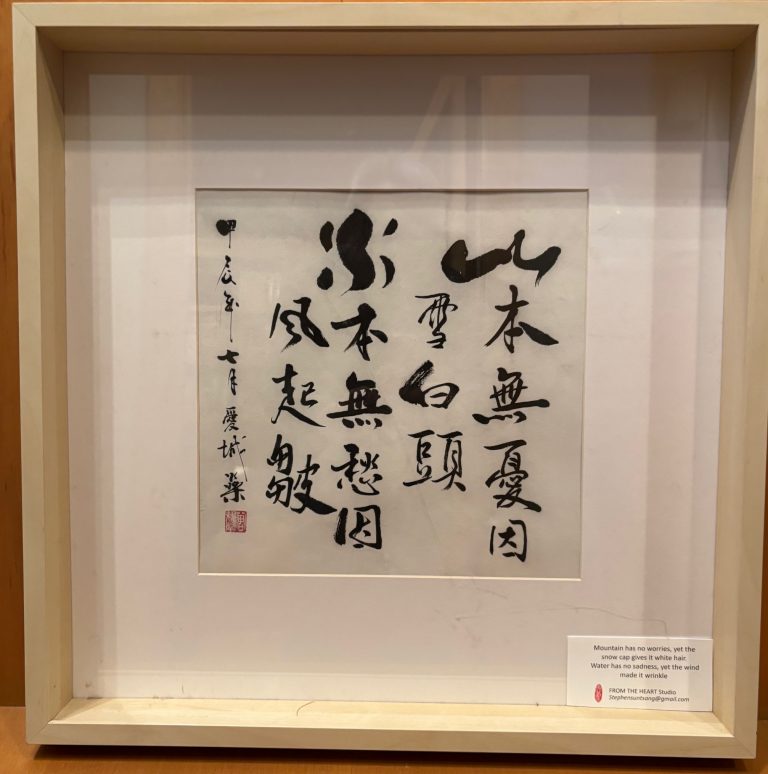 山本無憂因
雪白頭
水本無愁因
風起皺
甲辰年七月愛城
Mountain has no worries, yet the
snow cap gives it white hair.
Water has no sadness, yet the wind
made it wrinkle
FROM THE HEART Studio
Stephensuntsang@gmail.com